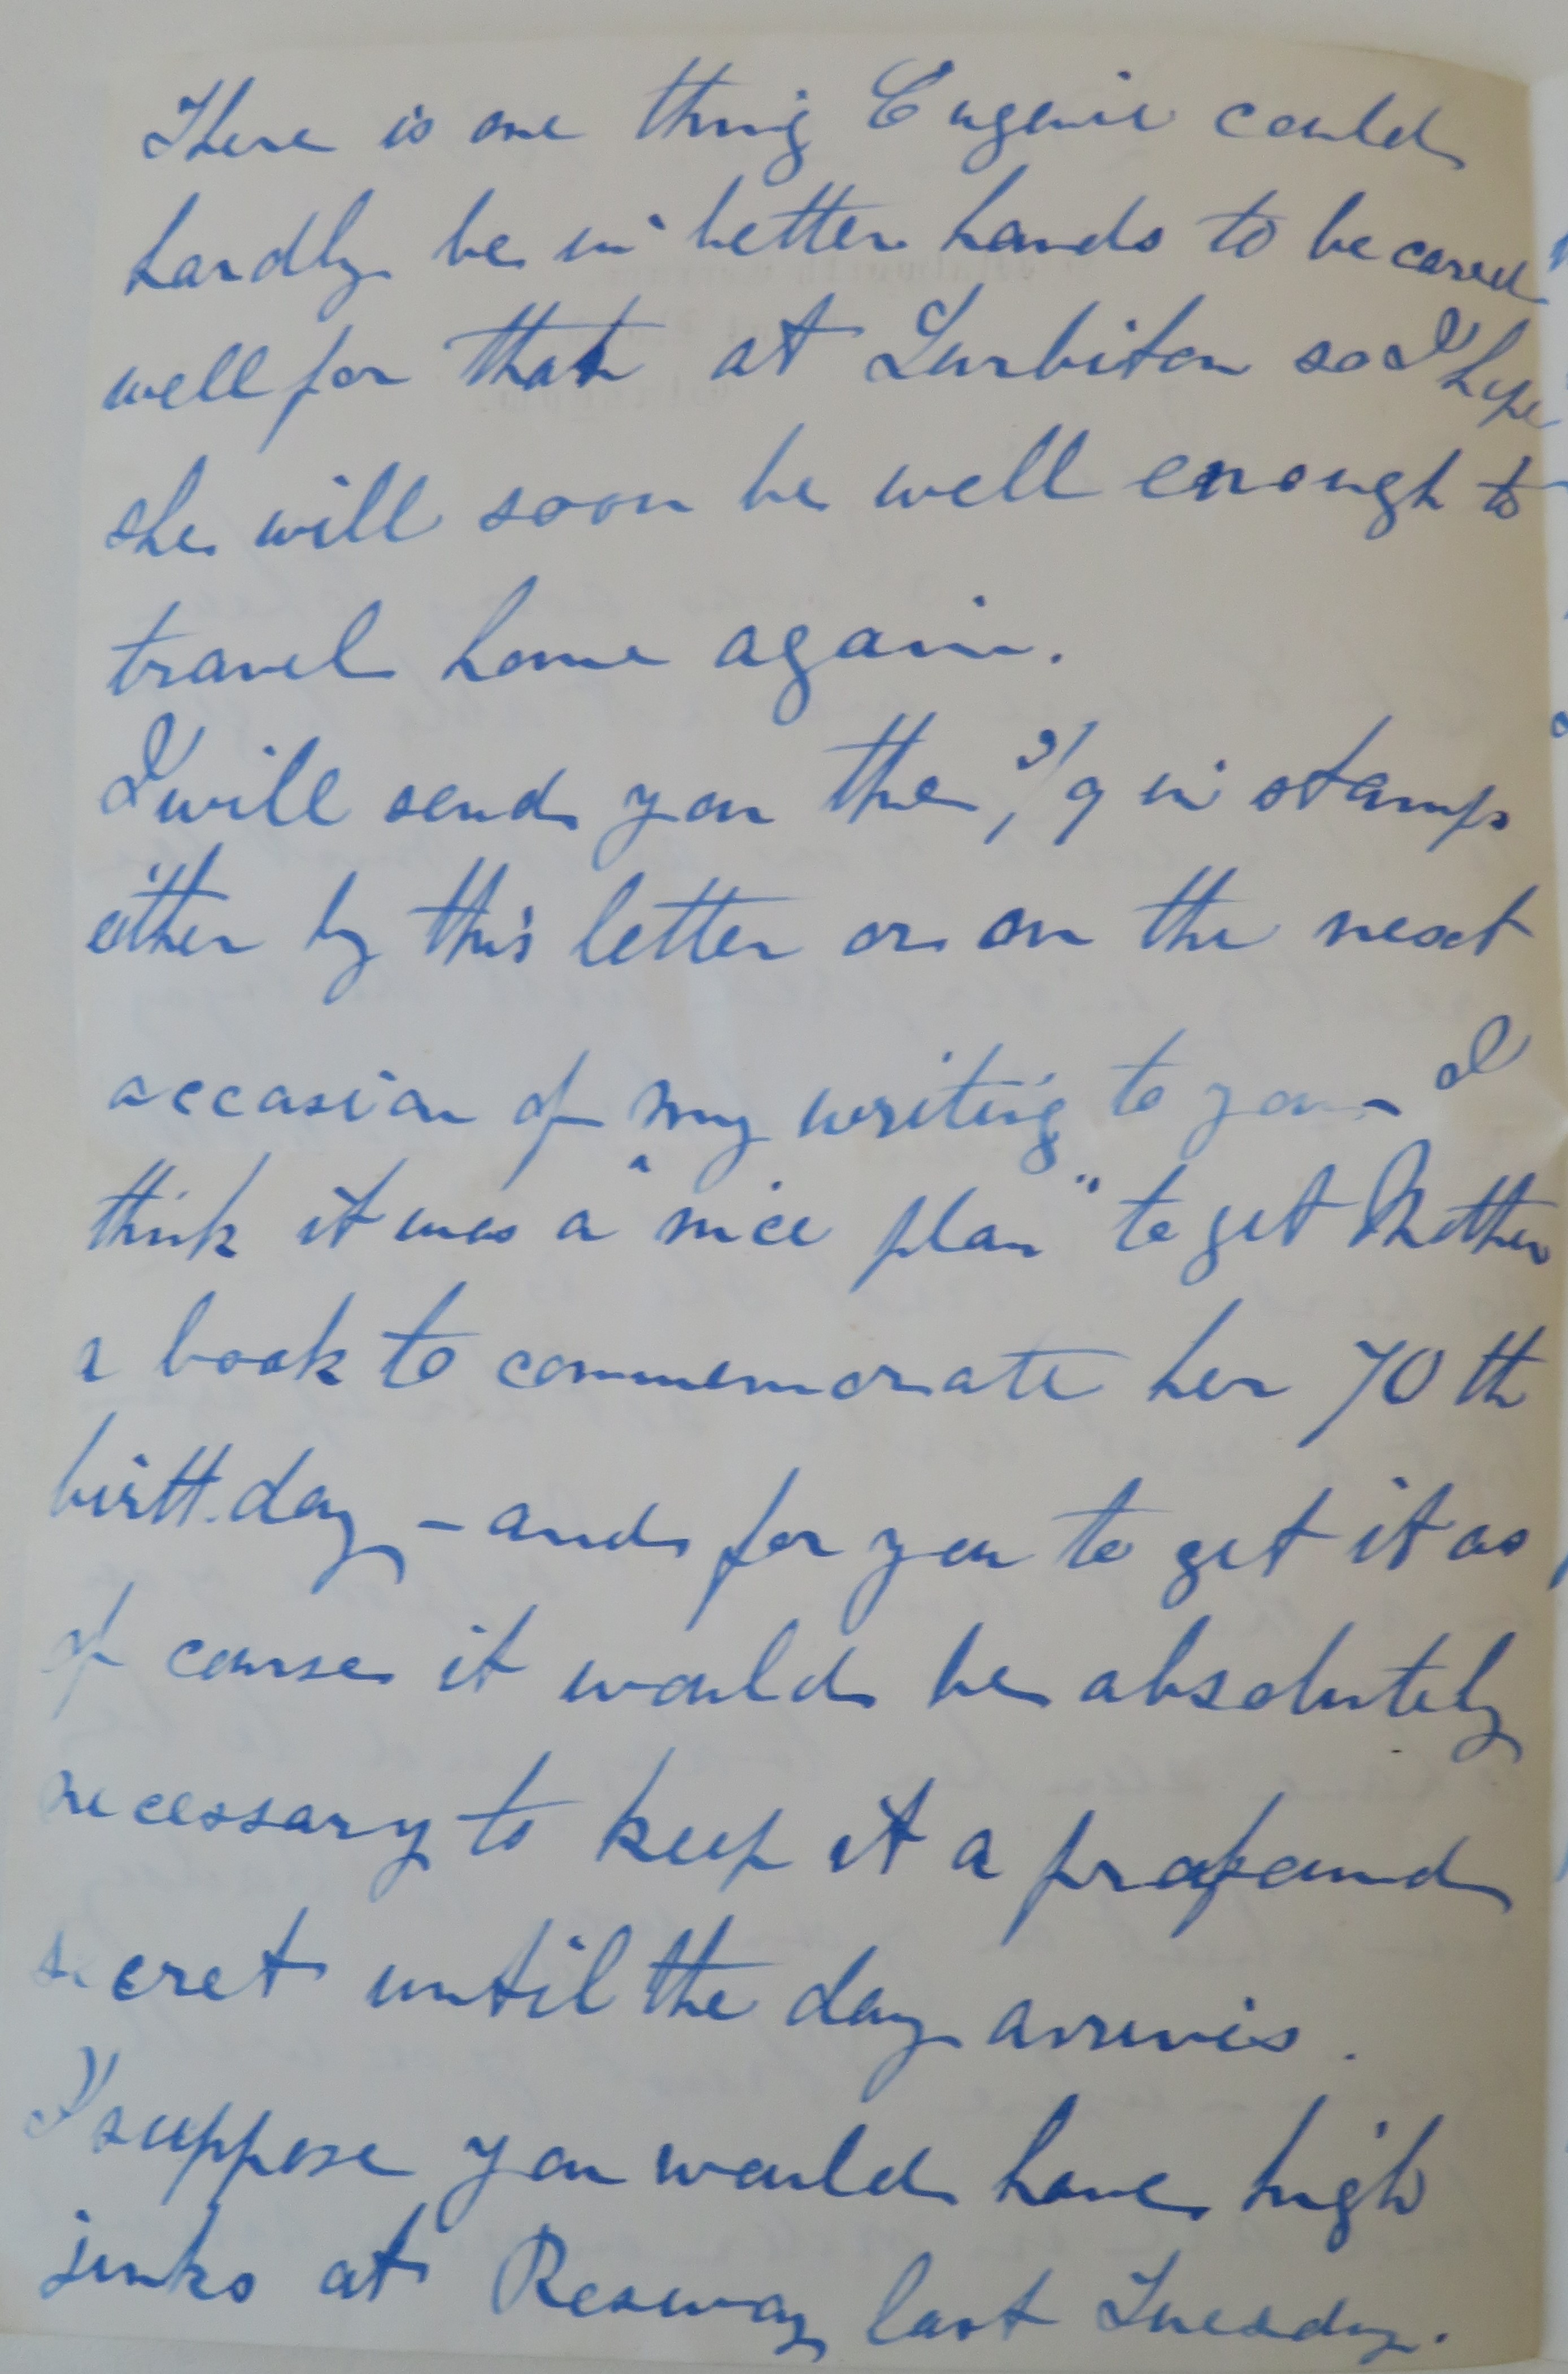 There is one thing Eugenie could
hardly be in better hands to be cared
well for than at Surbiton so I hope
she will soon be well enough to
travel home again.
I will send you the 3/9 in stamps
either by this letter or on the next
occasion of my writing to you – I
think it was a "nice plan" to get Mother
a book to commemorate her 70th
birthday – and for you to get it as
of course it would be absolutely
necessary to keep it a profound
secret until the day arrives.
I suppose you would have high
jinks at last Tuesday.